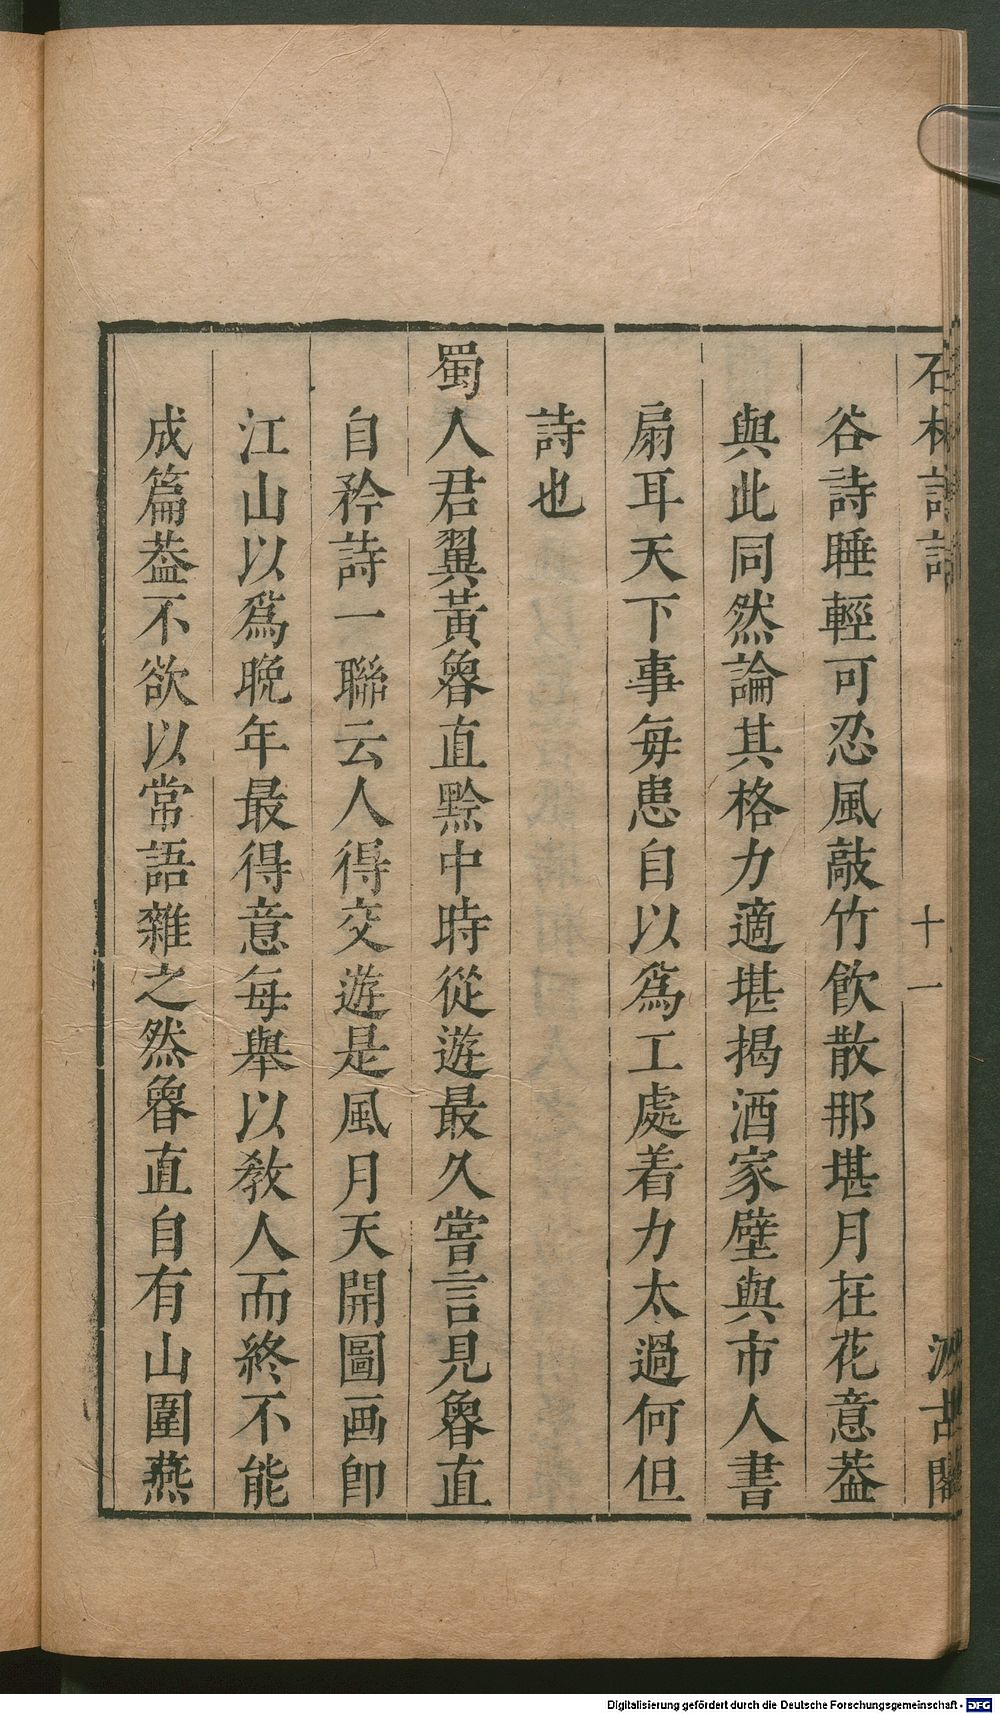 石林詩話
十一
汲古閣
谷詩睡輕可忍風敲竹飲散那堪月在花意葢
與此同然論其格力適堪揭酒家壁與市人書
扇耳天下事每患自以爲工處着力太過何但
詩也
蜀人君翼黃魯直黔中時從遊最久嘗言見魯直
自矜詩一聯云人得交遊是風月天開圖画卽
江山以爲晩年最得意每舉以教人而終不能
成篇葢不欲以常語雜之然魯直自有山圍燕
Digitalisierung gefördert durch die Deutsche Forschungsgemeinschaft - DFG